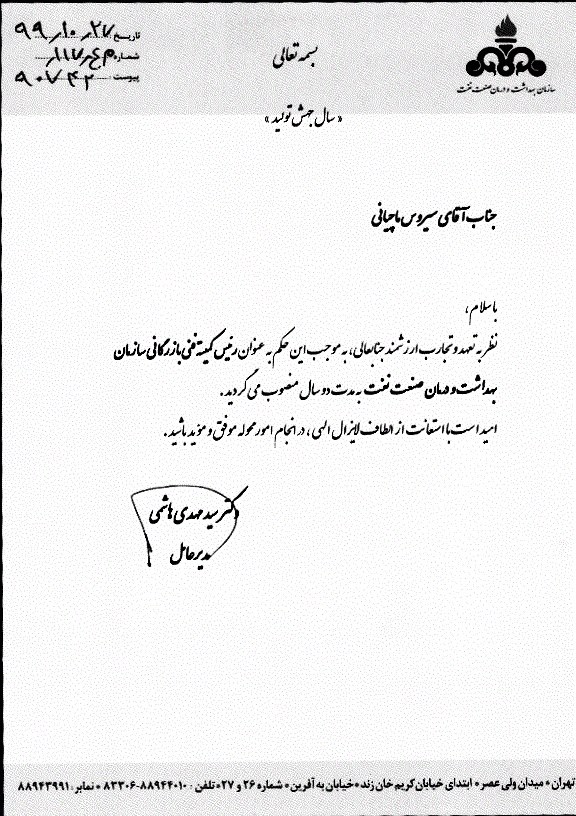 بسمه تعالی
« سال جهش تولید »
تاریخ ۹۹٫۱۰٫۲۷
شماره
پیوست
سازمان بهداشت و درمان صنعت نفت
جناب آقای سیروس ماچیانی
با سلام،
نظر به تعهد و تجارب ارزشمند جنابعالی، به موجب این حکم به عنوان رئیس کمیته فنی بازرگانی سازمان
بهداشت و درمان صنعت نفت به مدت دو سال منصوب می گردید .
امید است با استعانت از الطاف لایزال الهی ، در انجام امور محوله موفق و مؤید باشید .
دکتر سید مهدی هاشمی
مدیرعامل
تهران * میدان ولی عصر * ابتدای خیابان کریم خان زند * خیابان به آفرین * شماره ۲۶ و ۲۷ * تلفن : ۸۸۹۴۴۰۱۰-۸۳۳۰۶ * نمابر : ۸۸۹۴۳۹۹۱